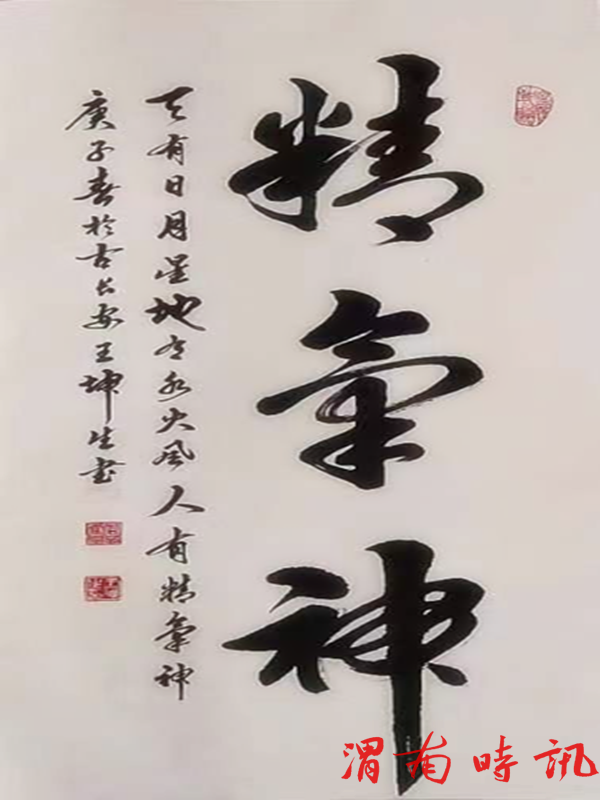 精氣神
天有日月星地有水火風人有精氣神
庚子春於古長安王坤生書
渭南時訊